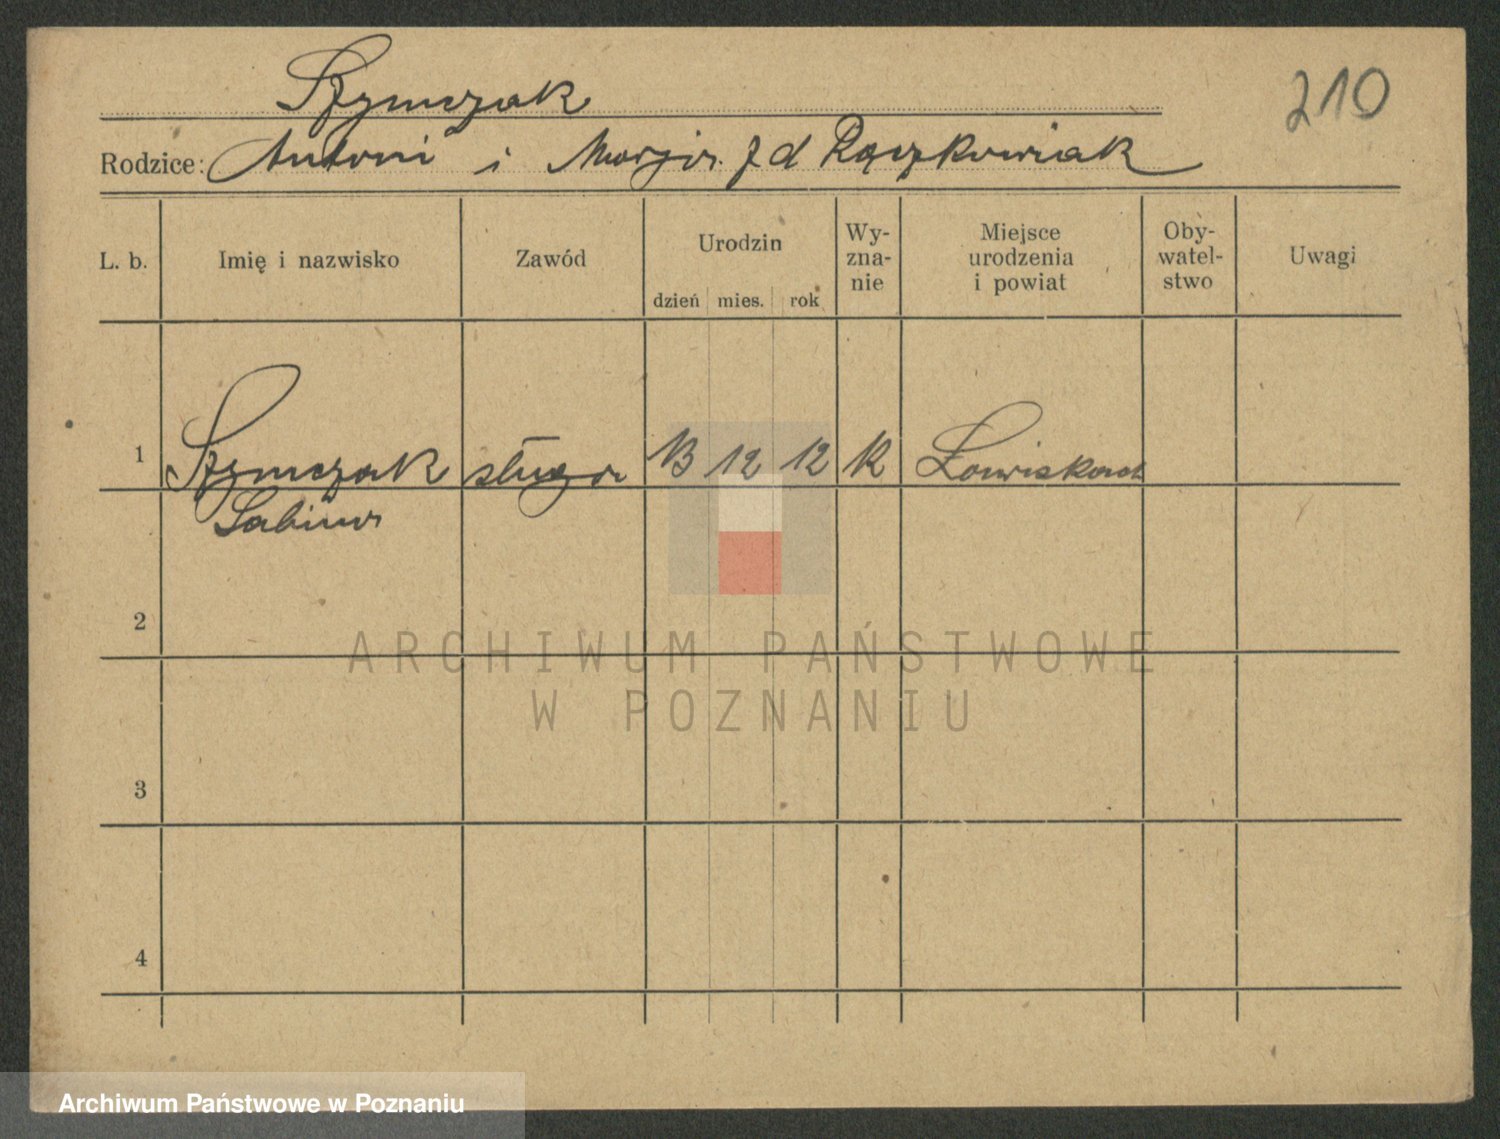 Szymczak
210
Rodzice: Antoni i Marja z d Rączkowiak
L. b. Imię i nazwisko Zawód Urodzin dzień mies. rok Wy-zna-nie Miejsce urodzenia i powiat Oby-watel-stwo Uwagi
1 Szymczak sługa 13 12 12 K
Sabina
2
3
4
ARCHIWUM PAŃSTWOWE
W POZNANIU
Archiwum Państwowe w Poznaniu